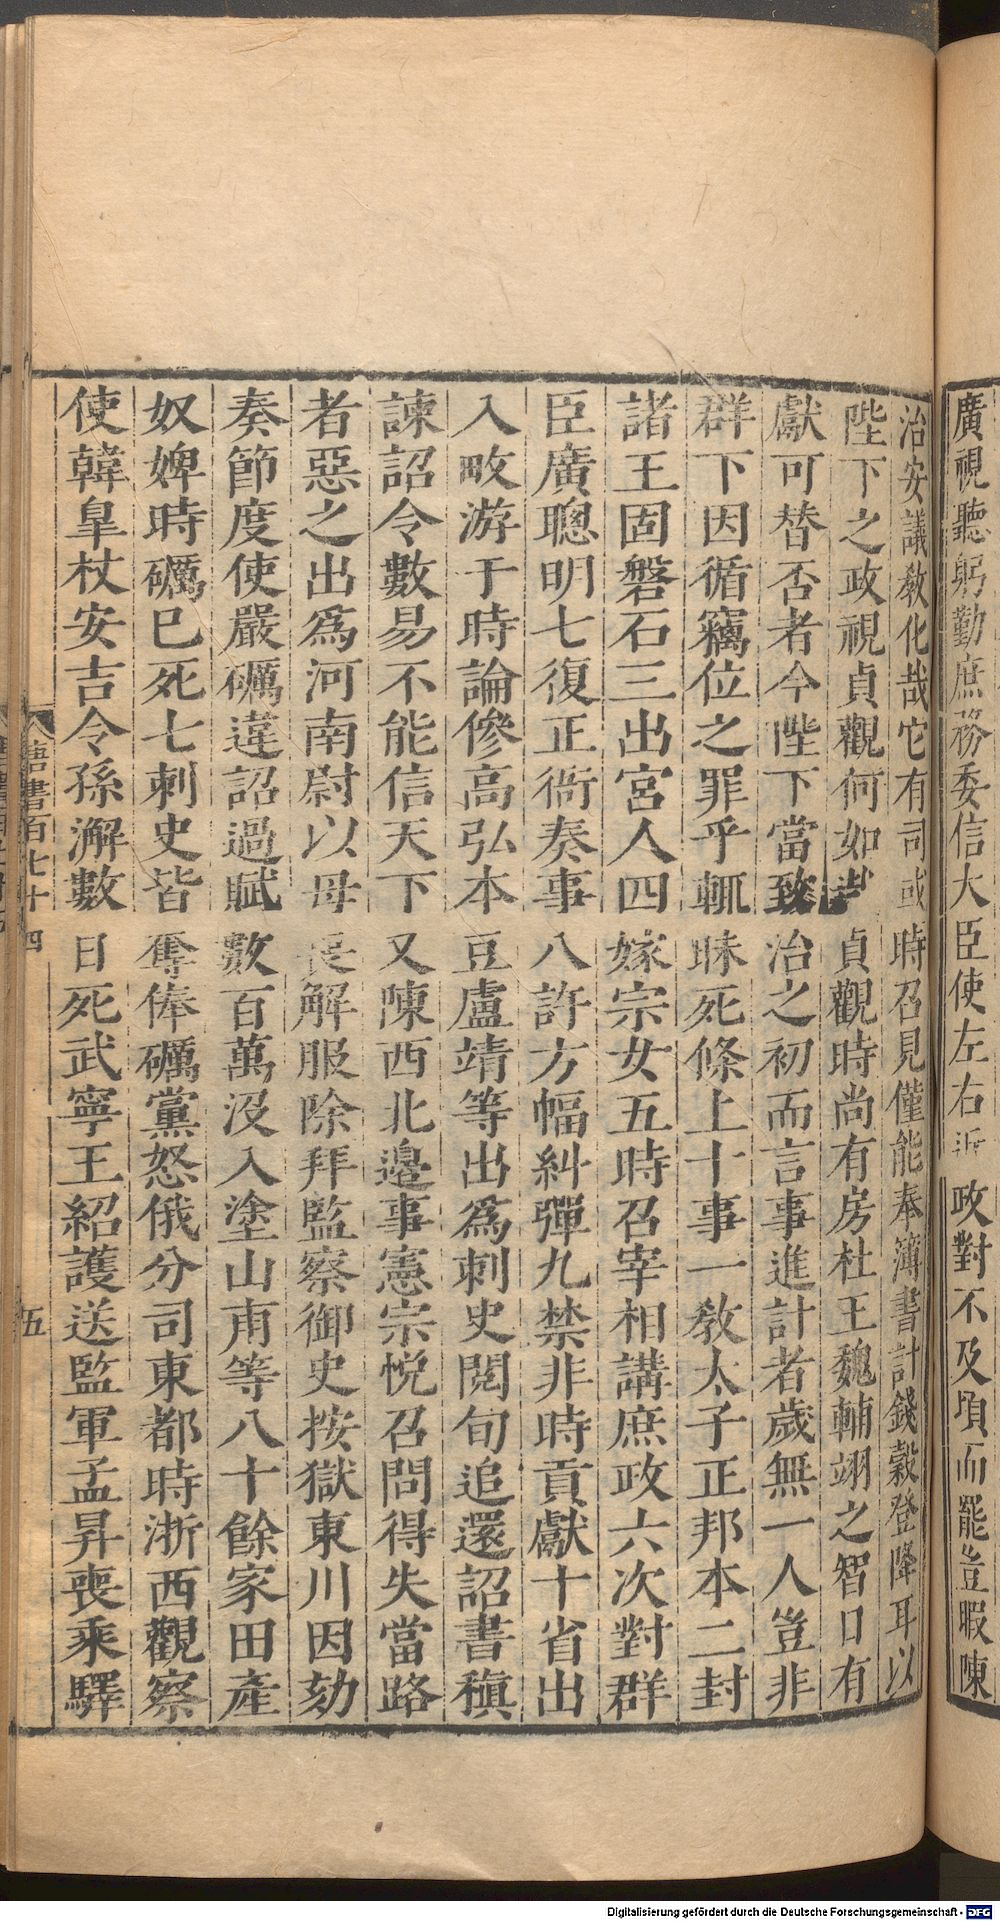 廣視聽躬勤庶務委信大臣使左右近政對不及頃而罷豈暇陳
治安議敎化哉它有司或時召見僅能奉簿書計錢穀登降耳以
陛下之政視貞觀何如哉貞觀時尚有房杜王魏輔翊之智日有
獻可替否者今陛下當致治之初而言事進計者歲無一人豈非
群下因循竊位之罪乎輒昧死條上十事一敎太子正邦本二封
諸王固磐石三出宮人四嫁宗女五時召宰相講庶政六次對群
臣廣聰明七復正衙奏事八許方幅糾彈九禁非時貢獻十省出
入畋游于時論傪高弘本豆盧靖等出爲刺史閱旬追還詔書稹
諫詔令數易不能信天下又陳西北邊事憲宗悅召問得失當路
者惡之出爲河南尉以母喪解服除拜監察御史按獄東川因劾
奏節度使嚴礪違詔過賦數百萬沒入塗山甫等八十餘家田產
奴婢時礪巳死七刺史皆奪俸礪黨怒俄分司東都時浙西觀察
使韓皐杖安吉令孫澥數日死武寧王紹護送監軍孟昇喪乘驛
唐書百七十四
五
Digitalisierung gefördert durch die Deutsche Forschungsgemeinschaft - DFG